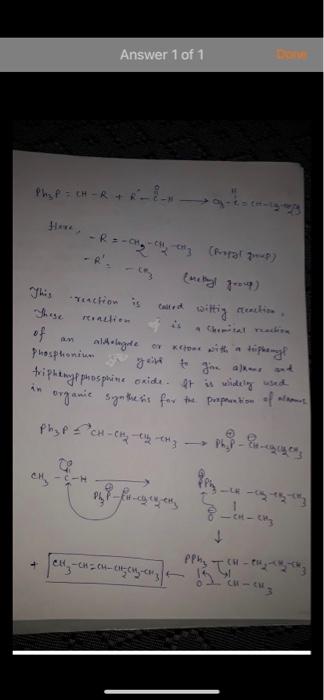 Answer 1 of 1
Done
Ph3P = CH - R + R' - C - H → CH3 - C = CH-CH2-CH2CH3
O
H
Here,
- R = - CH2 - CH2 - CH3 (Propyl group)
- R' = - CH3 (methyl group)
This reaction is called wittig reaction.
These reaction is a chemical reaction
of an aldehyde or ketone with a triphenyl
phosphonium to give alkene and
triphenylphosphine oxide. It is widely used
in organic synthesis for the preparation of
Ph3P = CH - CH2 - CH2 - CH3 → Ph3P - CH-CH2CH2CH3
O
CH3 - C - H →
Ph3P - CH-CH2CH2CH3
PPh3 - CH - CH2 - CH2 - CH3
O - CH - CH3
↓
PPh3 - CH - CH2 - CH2 - CH3
O - CH - CH3
+ CH3 - CH = CH - CH2CH2-CH3 ←